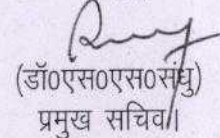 (डॉ0एस0एस0संधु)
प्रमुख सचिव।